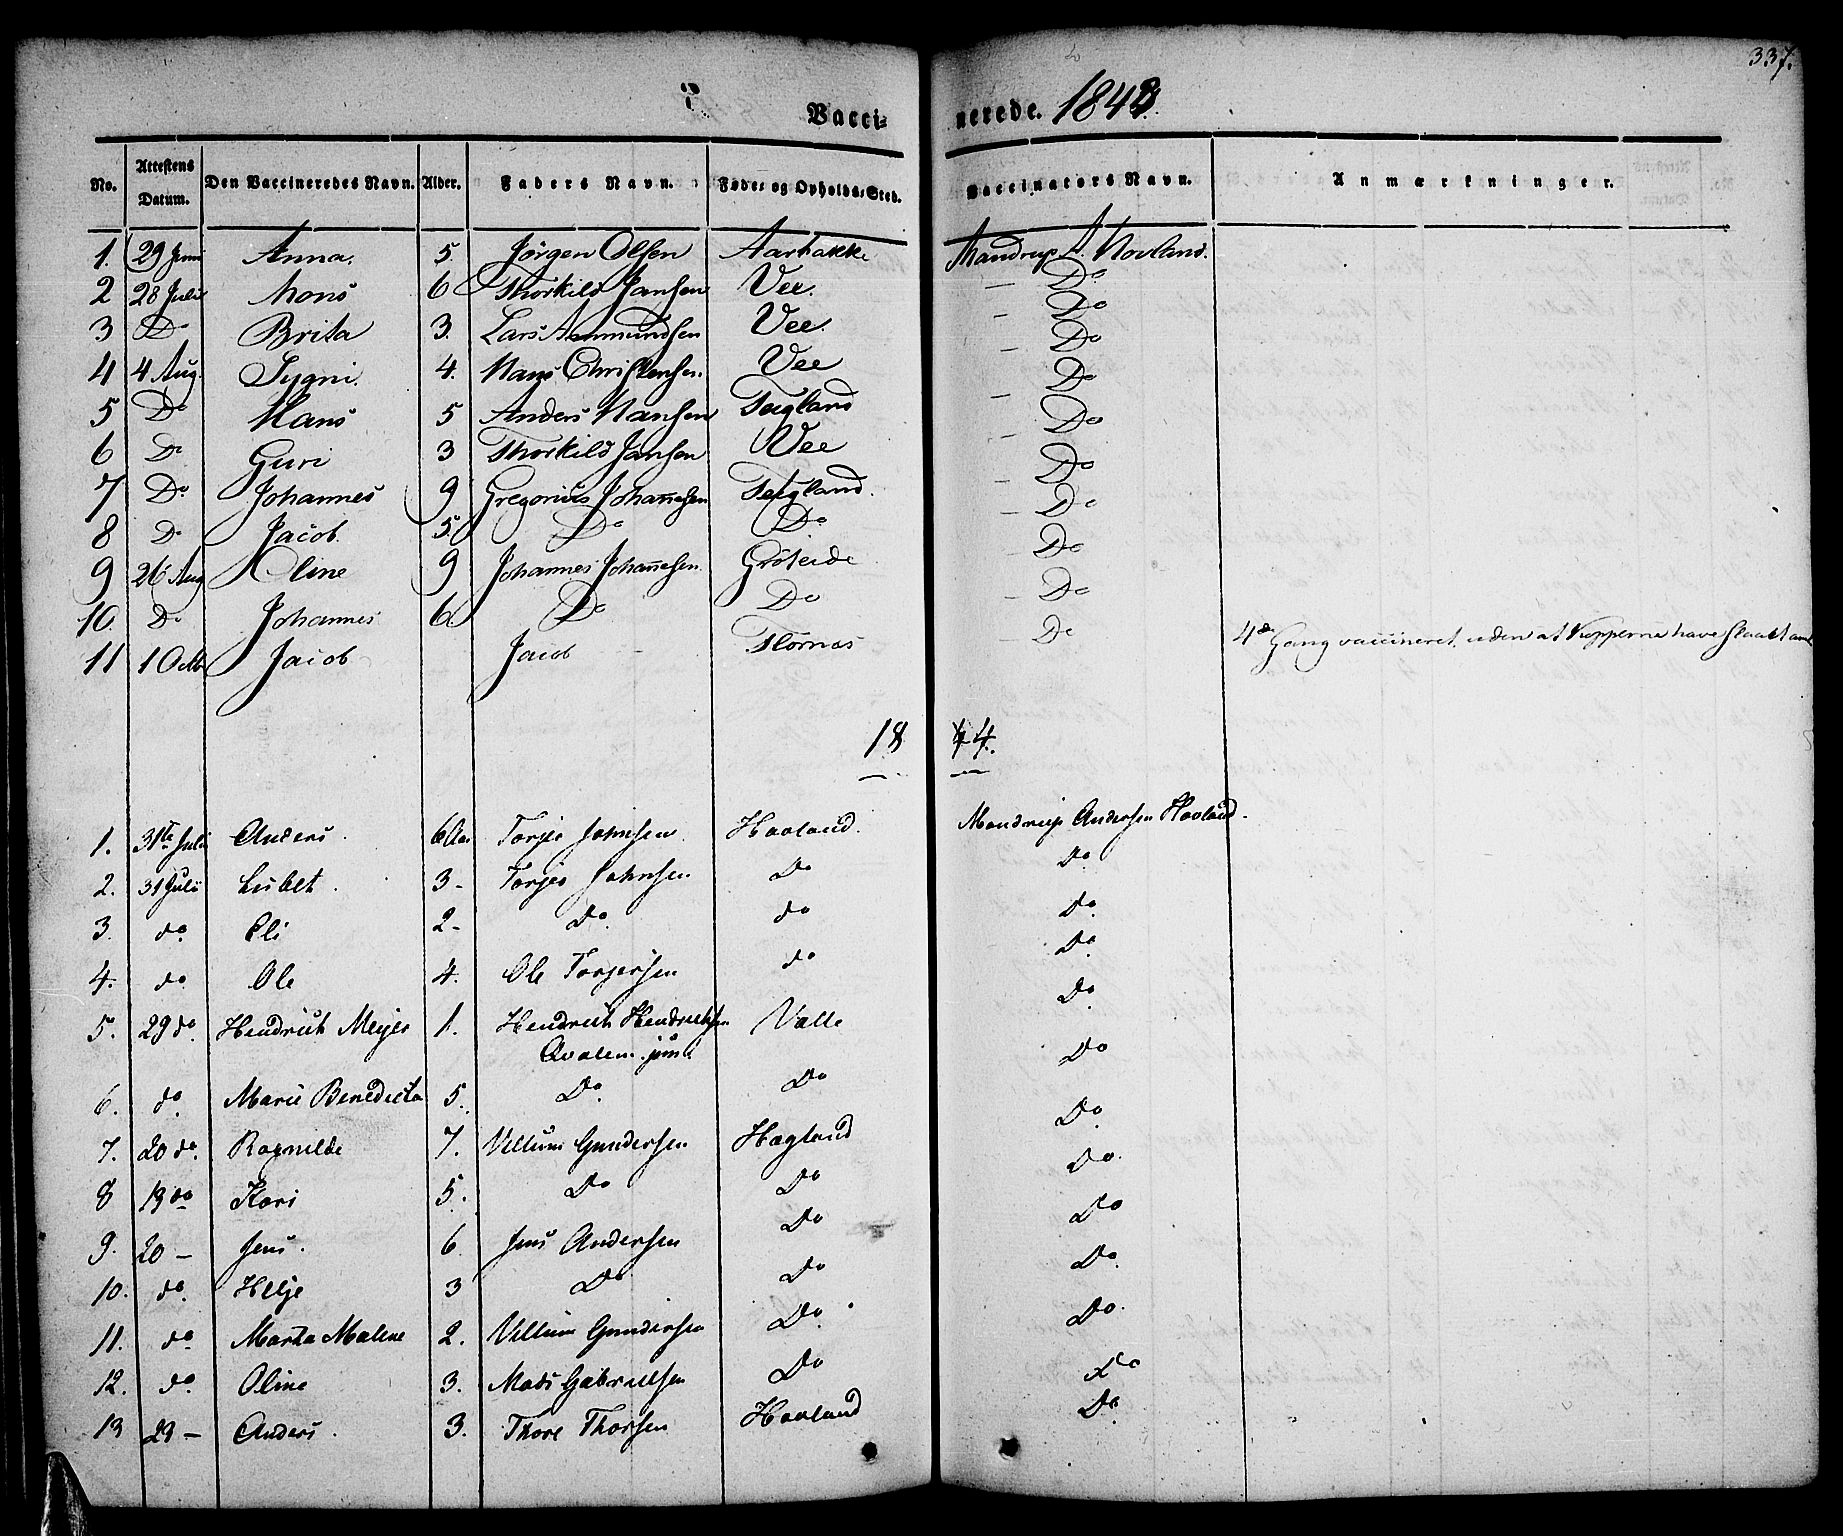 337.
Vaccinerede. 1843.
No. Attestens Datum. Den Vaccineredes Navn. Alder. Faders Navn. Føde- og Opholds-Sted. Vaccinators Navn. Anmærkninger.
1. 29 Juni Anna. 5. Jörgen Olsen Aarbakke Mandrup A. Hovland.
2 28 Juli Mons 6 Thorkild Jansen Vee. — Do
3 Do Brita 3. Lars Ammundsen Vee. — Do
4 4 Aug. Sygni. 4. Hans Christensen. Vee — Do
5 Do Hans 5 Anders Hansen Teigland — Do
6 Do Guri 3 Thorkild Jansen Vee — Do
7 Do Johannes 9 Gregorius Johannesen Teigland. — Do
8 Do Jacob. 5. Do Do — Do
9 26 Aug Oline 9 Johannes Johannesen. Do
10. Do Johannes 6. Do Do — Do
11 1 Octb Jacob Jacob Stornæs — Do 4de Gang vaccineret, uden at Kopperne have slaaet an
1844.
1. 31te Juli Anders. 6 Aar Torjes Johnsen. Hovland. Mandrup Andersen Hovland.
2. 31 Juli Lisbet. 3 - Torjes Johnsen Do Do
3. do Eli 2 - Do. do Do.
4. do Ole 4. Ole Torjersen do Do.
5. 29 do. Hendrich Meyer 1. Hendrich Hendrichsen Valle Do.
Qvalem. jun
6. do. Marie Benedicta 5. Do. Do Do
7. 20 do. Ragnilde 7. Villum Gundersen Hagland Do.
8 19 do Kari 5. Do Do Do.
9. 20 — Jens. 6. Jens Andersen Do Do
10. do. Helje 3 Do Do Do.
11. do. Marta Malene 2. Villum Gundersen Do. Do.
12. do. Oline 3. Mads Gabrielsen Do Do
13 29 — Anders. 3. Thore Thorsen Hovland Do.